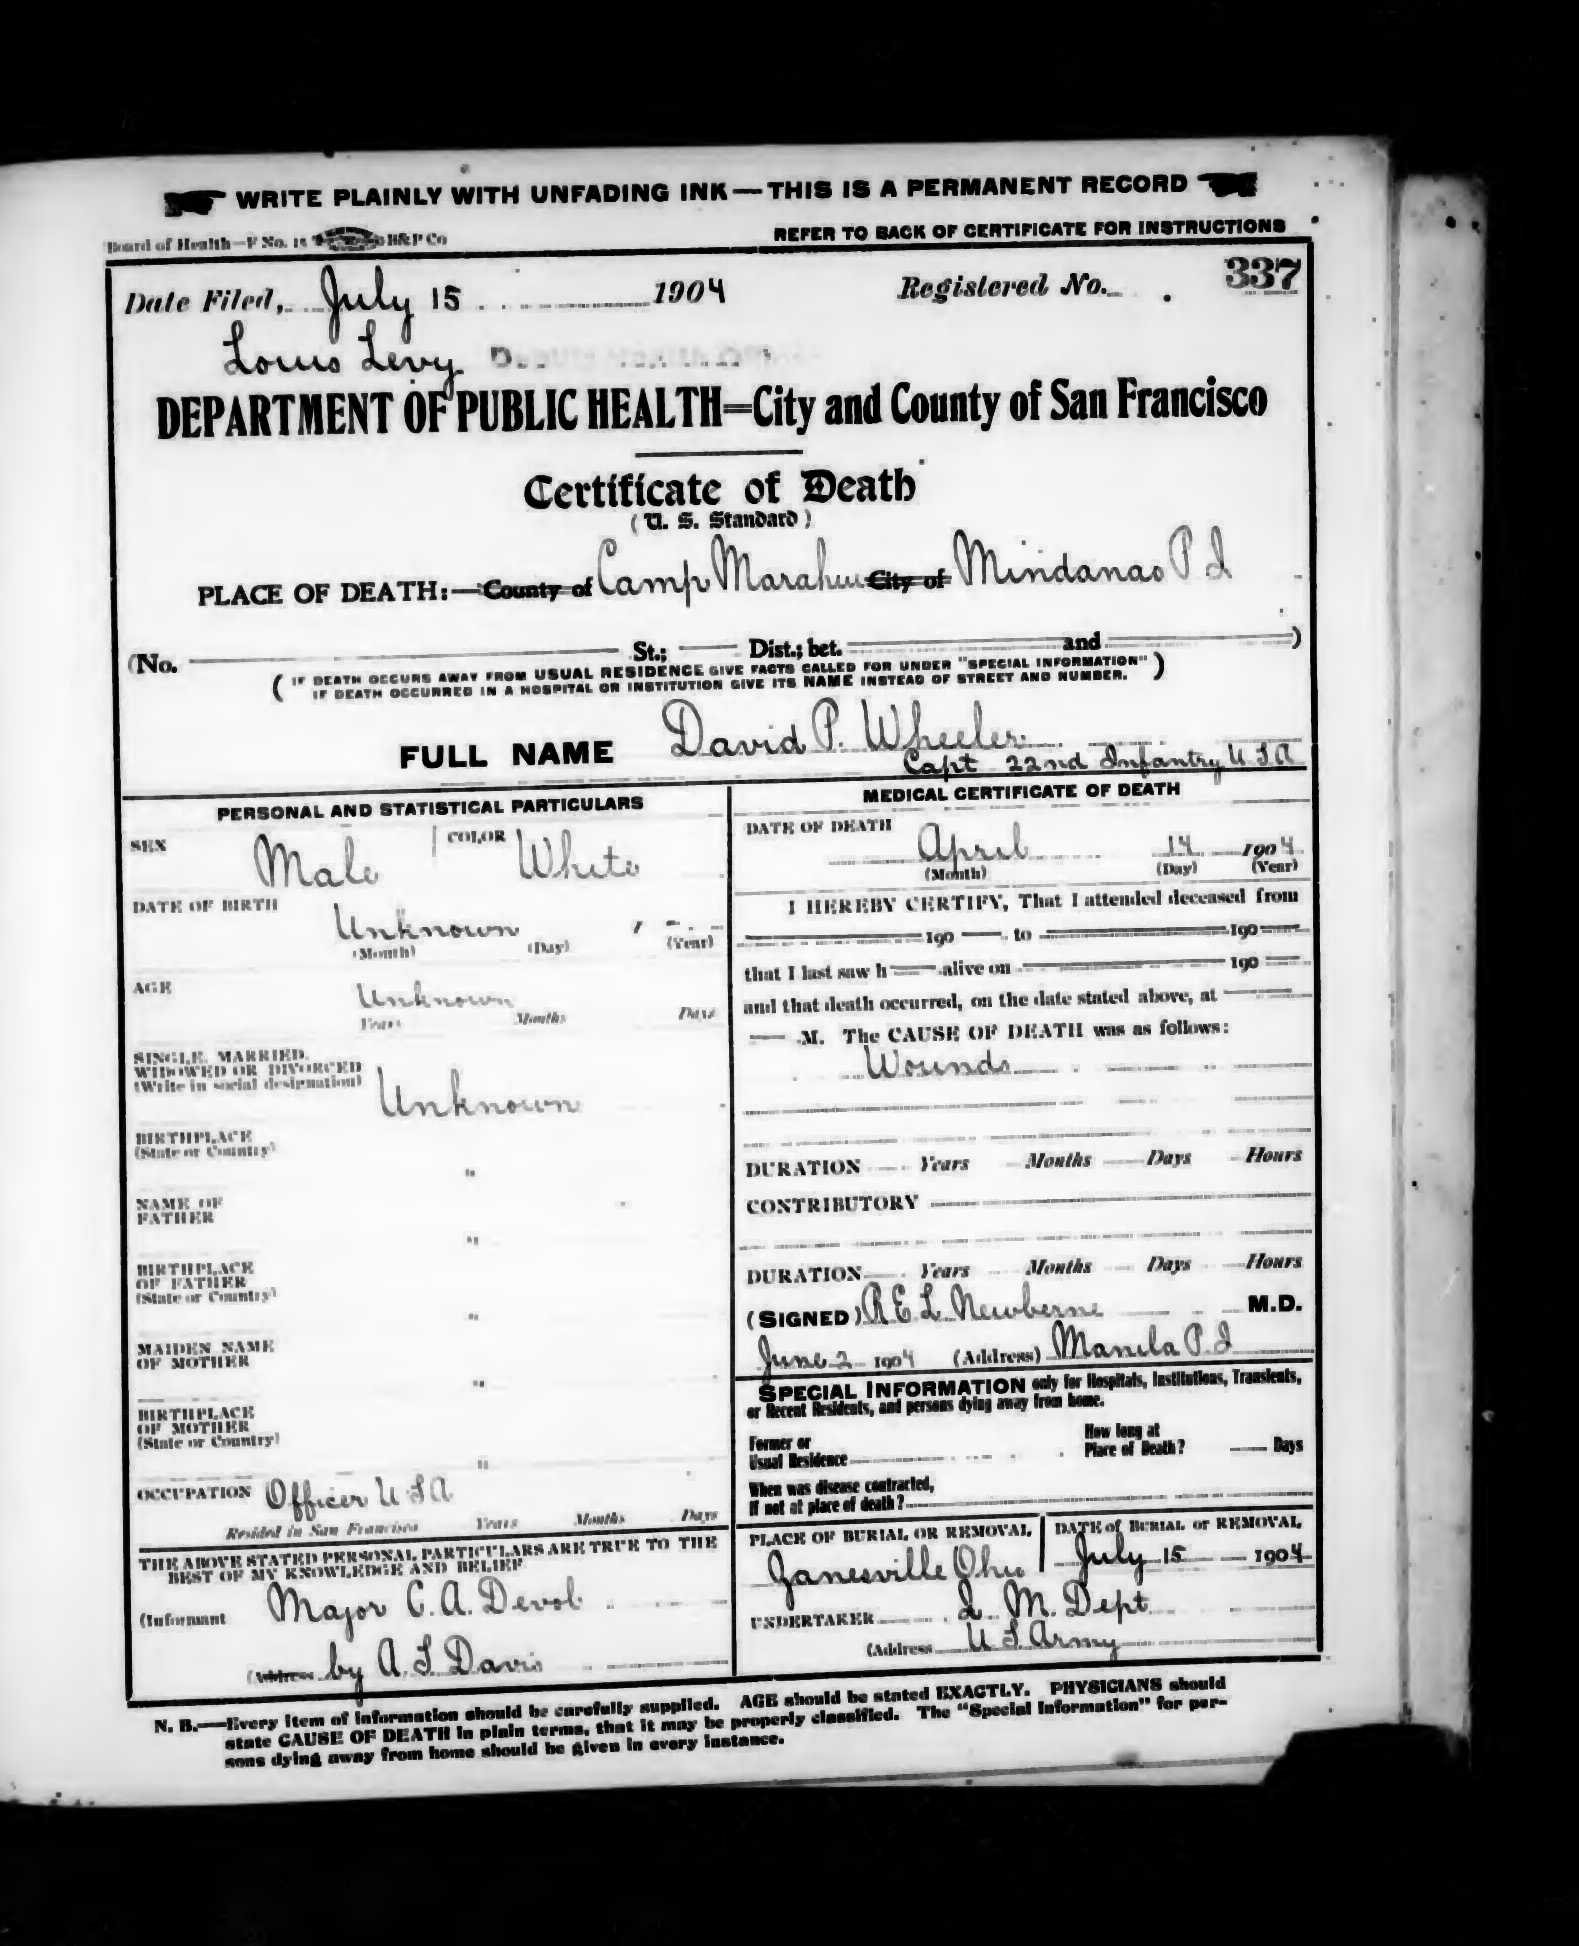 WRITE PLAINLY WITH UNFADING INK—THIS IS A PERMANENT RECORD
Board of Health—F No. 15 H&P Co
REFER TO BACK OF CERTIFICATE FOR INSTRUCTIONS
Date Filed, July 15 1904 Registered No. 337
Louis Levy
DEPARTMENT OF PUBLIC HEALTH=City and County of San Francisco
Certificate of Death
(U. S. Standard)
PLACE OF DEATH:—County of Camp City of Mindanao P I
(No. St.; Dist.; bet. and )
( IF DEATH OCCURS AWAY FROM USUAL RESIDENCE GIVE FACTS CALLED FOR UNDER "SPECIAL INFORMATION" )
IF DEATH OCCURRED IN A HOSPITAL OR INSTITUTION GIVE ITS NAME INSTEAD OF STREET AND NUMBER.
FULL NAME David P. Wheeler
Capt 22nd Infantry U S A
PERSONAL AND STATISTICAL PARTICULARS
SEX Male COLOR White
DATE OF BIRTH Unknown
(Month) (Day) (Year)
AGE Unknown
Years Months Days
SINGLE, MARRIED,
WIDOWED OR DIVORCED
(Write in social designation) Unknown
BIRTHPLACE
(State or Country) "
NAME OF
FATHER "
BIRTHPLACE
OF FATHER
(State or Country) "
MAIDEN NAME
OF MOTHER "
BIRTHPLACE
OF MOTHER
(State or Country) "
OCCUPATION Officer U S A
Resided in San Francisco Years Months Days
THE ABOVE STATED PERSONAL PARTICULARS ARE TRUE TO THE
BEST OF MY KNOWLEDGE AND BELIEF
(Informant Major C. A. Devol
(Address by A. S Davis
MEDICAL CERTIFICATE OF DEATH
DATE OF DEATH
April 14 1904
(Month) (Day) (Year)
I HEREBY CERTIFY, That I attended deceased from
190 to 190
that I last saw h alive on 190
and that death occurred, on the date stated above, at
M. The CAUSE OF DEATH was as follows:
Wounds
DURATION Years Months Days Hours
CONTRIBUTORY
DURATION Years Months Days Hours
(SIGNED) R E L Newberne M.D.
June 2 1904 (Address) Manila P. I
SPECIAL INFORMATION only for Hospitals, Institutions, Transients,
or Recent Residents, and persons dying away from home.
Former or
Usual Residence
How long at
Place of Death? Days
When was disease contracted,
If not at place of death?
PLACE OF BURIAL OR REMOVAL
Zanesville Ohio
DATE of BURIAL or REMOVAL
July 15 1904
UNDERTAKER Q. M. Dept
(Address U S Army
N. B.—Every item of information should be carefully supplied. AGE should be stated EXACTLY. PHYSICIANS should
state CAUSE OF DEATH in plain terms, that it may be properly classified. The "Special Information" for per-
sons dying away from home should be given in every instance.